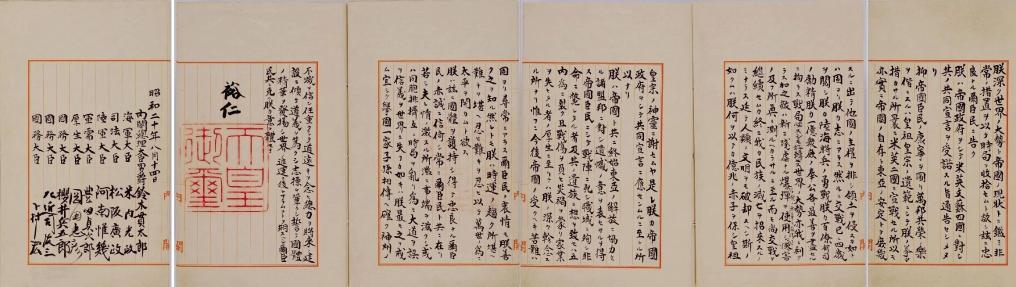 朕深ク世界ノ大勢ト帝國ノ現狀トニ鑑ミ非
常ノ措置ヲ以テ時局ヲ收拾セムト欲シ茲ニ忠
良ナル爾臣民ニ告ク
朕ハ帝國政府ヲシテ米英支蘇四國ニ對シ
其ノ共同宣言ヲ受諾スル旨通告セシメタ
リ
抑〻帝國臣民ノ康寧ヲ圖リ萬邦共榮ノ樂
ヲ偕ニスルハ皇祖皇宗ノ遺範ニシテ朕ノ拳々
措カサル所曩ニ米英二國ニ宣戰セル所以モ
亦實ニ帝國ノ自存ト東亞ノ安定トヲ庶幾
スルニ出テ他國ノ主權ヲ排シ領土ヲ侵スカ如キ
ハ固ヨリ朕カ志ニアラス然ルニ交戰已ニ四歲
ヲ閱シ朕カ陸海將兵ノ勇戰朕カ百僚有司
ノ勵精朕カ一億衆庶ノ奉公各〻最善ヲ盡セルニ
拘ラス戰局必スシモ好轉セス世界ノ大勢亦我ニ利
アラス加之敵ハ新ニ殘虐ナル爆彈ヲ使用シテ頻ニ無辜ヲ殺傷シ慘害ノ
及フ所眞ニ測ルヘカラサルニ至ル而モ尚交戰ヲ
繼續セムカ終ニ我カ民族ノ滅亡ヲ招來スルノ
ミナラス延テ人類ノ文明ヲモ破却スヘシ斯ノ
如クムハ朕何ヲ以テカ億兆ノ赤子ヲ保シ皇祖
皇宗ノ神靈ニ謝セムヤ是レ朕カ帝國
政府ヲシテ共同宣言ニ應セシムルニ至レル所
以ナリ
朕ハ帝國ト共ニ終始東亞ノ解放ニ協力セ
ル諸盟邦ニ對シ遺憾ノ意ヲ表セサルヲ得
ス帝國臣民ニシテ戰陣ニ死シ職域ニ殉シ非
命ニ斃レタル者及其ノ遺族ニ想ヲ致セハ五
內爲ニ裂ク且戰傷ヲ負ヒ災禍ヲ蒙リ家業
ヲ失ヒタル者ノ厚生ニ至リテハ朕ノ深ク軫念ス
ル所ナリ惟フニ今後帝國ノ受クヘキ苦難ハ
固ヨリ尋常ニアラス爾臣民ノ衷情モ朕善
ク之ヲ知ル然レトモ朕ハ時運ノ趨ク所堪ヘ
難キヲ堪ヘ忍ヒ難キヲ忍ヒ以テ萬世ノ爲ニ
太平ヲ開カムト欲ス
朕ハ茲ニ國體ヲ護持シ得テ忠良ナル爾臣
民ノ赤誠ニ信倚シ常ニ爾臣民ト共ニ在リ
若シ夫レ情ノ激スル所濫ニ事端ヲ滋クシ或
ハ同胞排擠互ニ時局ヲ亂リ爲ニ大道ヲ誤
リ信義ヲ世界ニ失フカ如キハ朕最モ之ヲ戒
ム宜シク擧國一家子孫相傳ヘ確ク神州ノ
不滅ヲ信シ任重クシテ道遠キヲ念ヒ總力ヲ將來ノ建
設ニ傾ケ道義ヲ篤クシ志操ヲ鞏クシ誓テ國體
ノ精華ヲ發揚シ世界ノ進運ニ後レサラムコトヲ期スヘシ爾臣
民其レ克ク朕カ意ヲ體セヨ
裕仁
天皇
御璽
昭和二十年八月十四日
內閣總理大臣男爵 鈴木貫太郎
海軍大臣 米內光政
司法大臣 松阪廣政
陸軍大臣 阿南惟幾
軍需大臣 豐田貞次郎
厚生大臣 岡田忠彥
國務大臣 櫻井兵五郎
國務大臣 左近司政三
國務大臣 下村宏